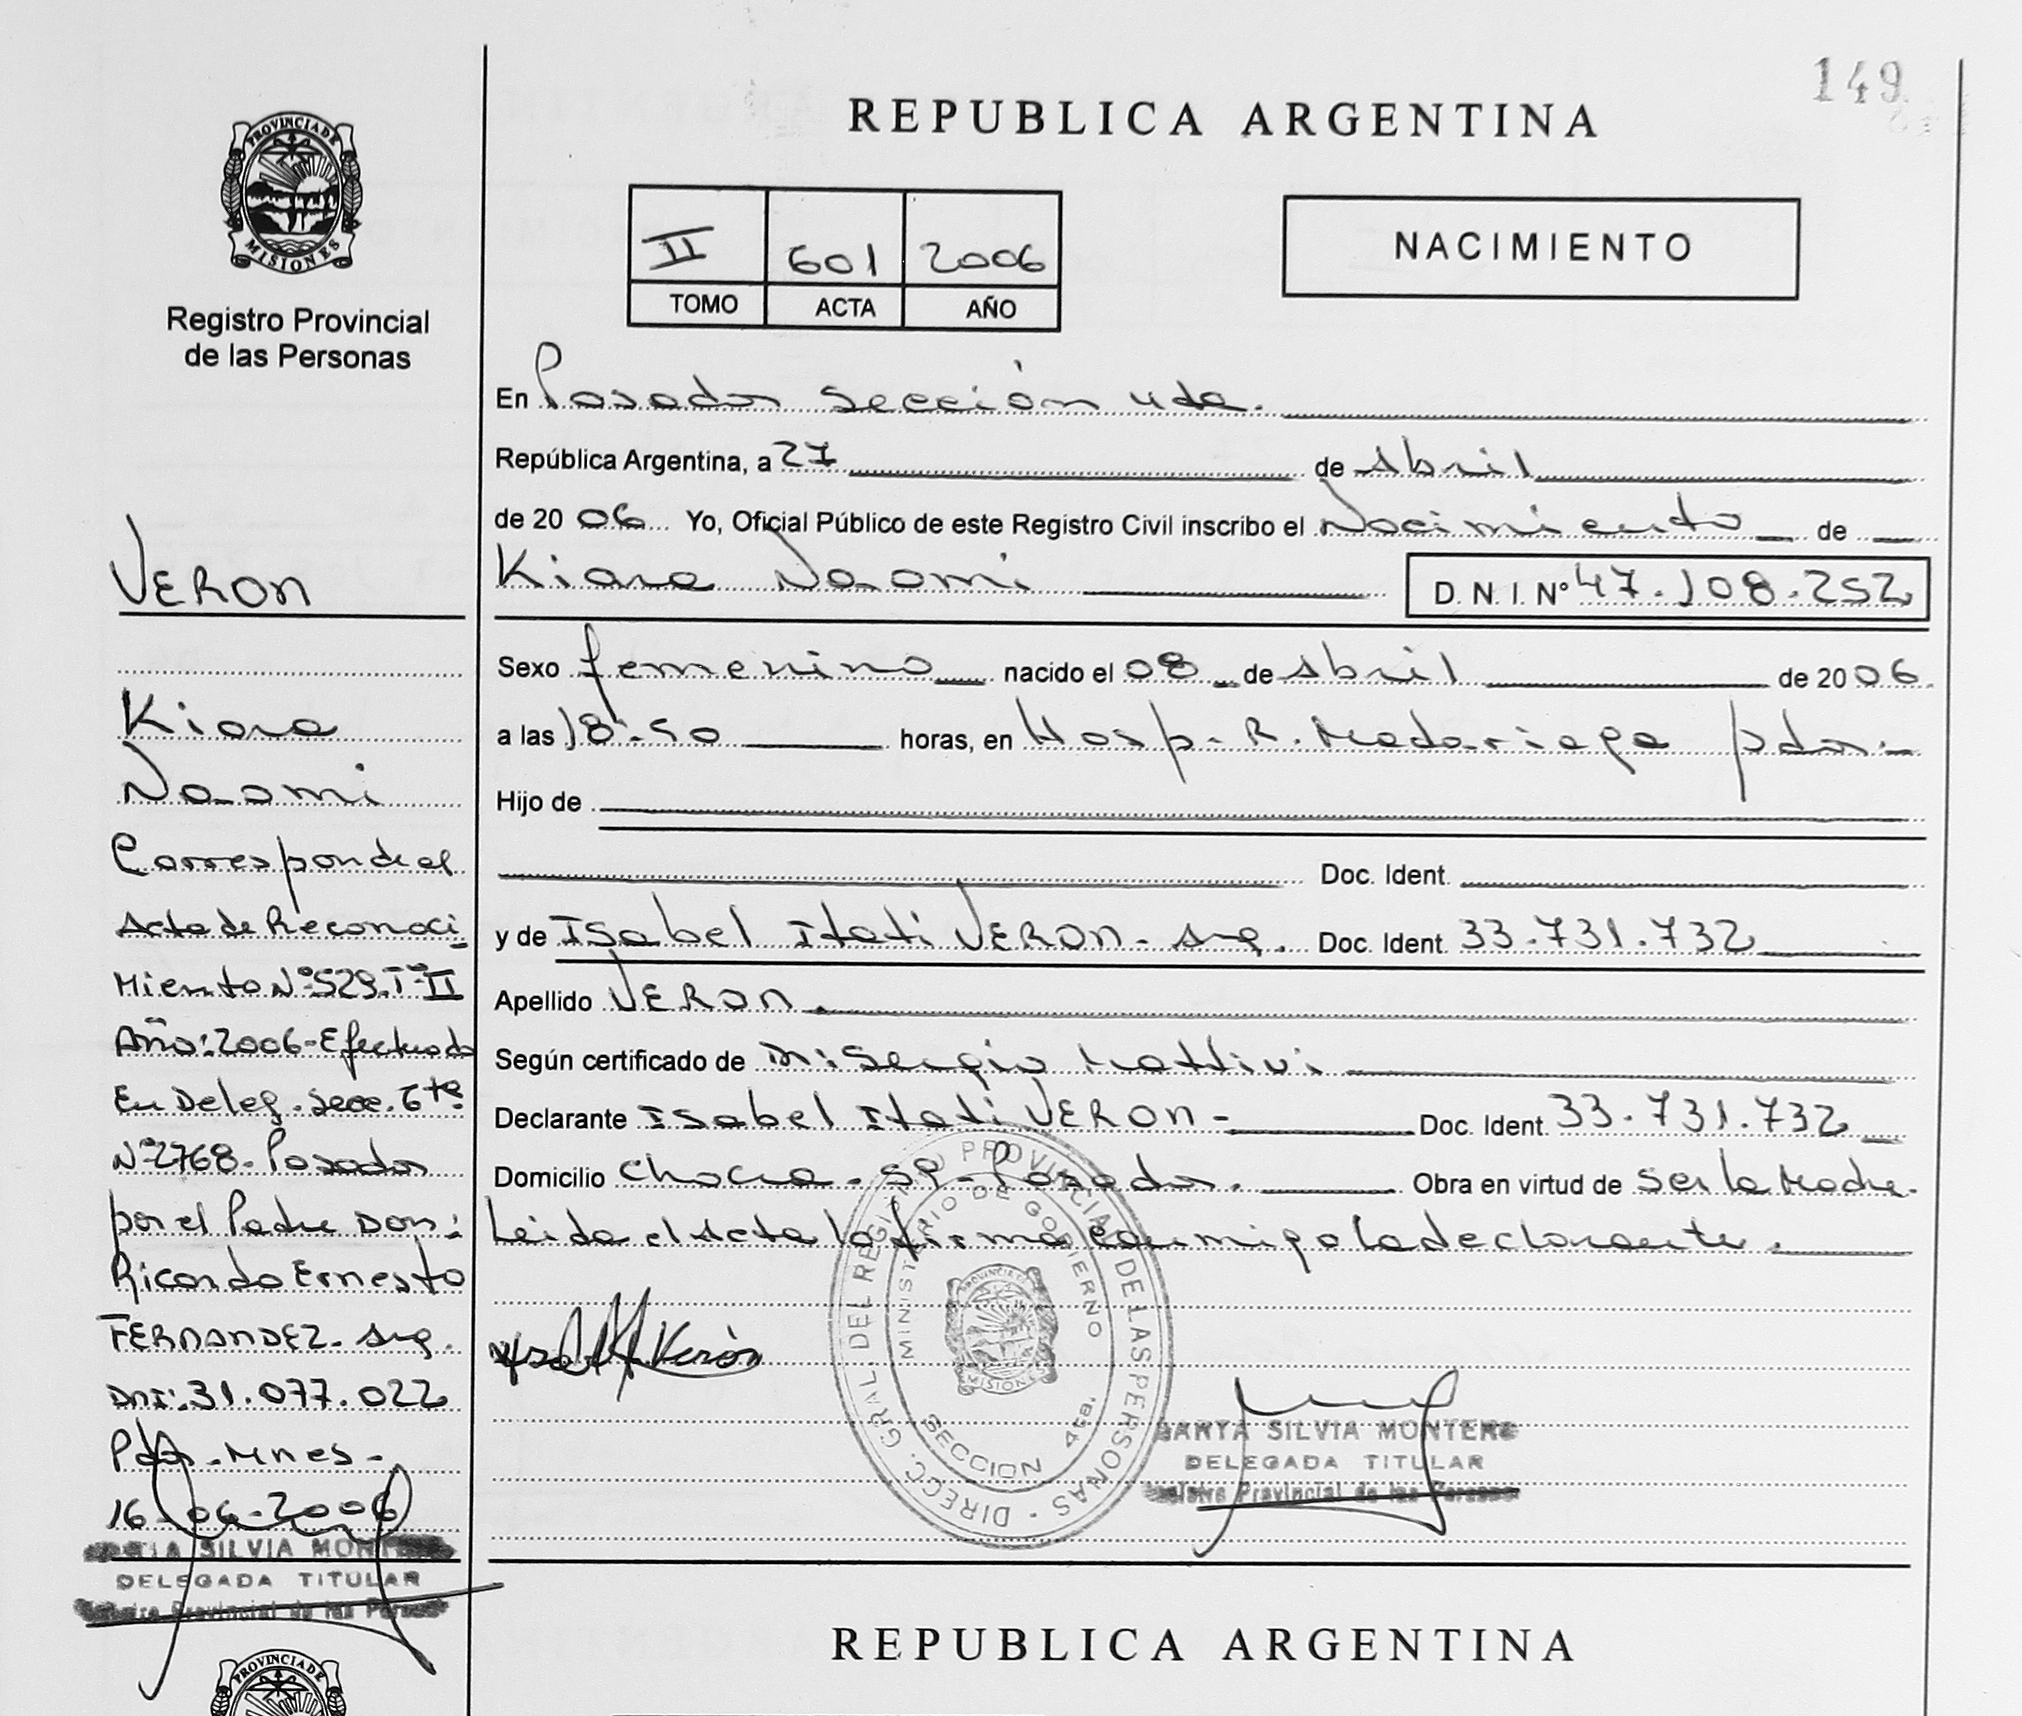 149
REPUBLICA ARGENTINA
PROVINCIA DE
MISIONES
Registro Provincial
de las Personas
II 601 2006
TOMO ACTA AÑO
NACIMIENTO
En Posadas sección 4ta.
República Argentina, a 27 de Abril
de 20 06 Yo, Oficial Público de este Registro Civil inscribo el Nacimiento de
Kiara Naomi D. N. I. Nº 47.108.252
Sexo femenino nacido el 08 de Abril de 20 06
a las 18.50 horas, en Hosp. R. Madariaga pdas.
Hijo de
Doc. Ident.
y de Isabel Itati VERON - Arg. Doc. Ident. 33.731.732
Apellido VERON.
Según certificado de Dr: Sergio
Declarante Isabel Itati VERON - Doc. Ident. 33.731.732
Domicilio Posadas. Obra en virtud de ser la Madre.
Leida el Acta la firma conmigo la declarante.
Verón
DIRECC. GRAL. DEL REGISTRO PROVINCIAL DE LAS PERSONAS
MINISTERIO DE GOBIERNO
PROVINCIA DE
MISIONES
SECCION 4ta.
SILVIA MONTERO
DELEGADA TITULAR
Registro Provincial de las Personas
VERON
Kiara
Naomi
Corresponde al
Acta de Reconoci
Miento Nº 529. Tº II
Año: 2006 - Efectuado
En Deleg. Secc. 6ta
Nº 2768 - Posadas
por el Padre Don:
Ricardo Ernesto
FERNANDEZ - Arg.
DNI: 31.077.022
Pdas - Mnes -
16-06-2006
SILVIA MONTERO
DELEGADA TITULAR
Registro Provincial de las Personas
PROVINCIA DE
REPUBLICA ARGENTINA